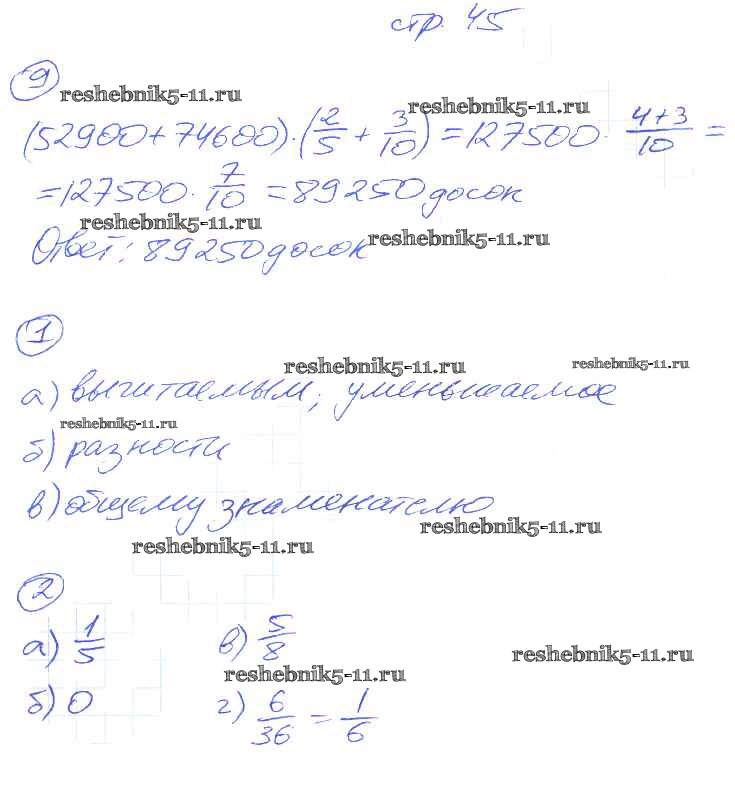 стр. 45
9
reshebnik5-11.ru
reshebnik5-11.ru
(52900+74600)·(2/5 + 3/10) = 127500 · 4+3/10 =
= 127500 · 7/10 = 89250 досок
reshebnik5-11.ru
reshebnik5-11.ru
Ответ: 89250 досок
1
reshebnik5-11.ru
reshebnik5-11.ru
а) вычитаемым; уменьшаемое
reshebnik5-11.ru
б) разности
в) общему знаменателю
reshebnik5-11.ru
reshebnik5-11.ru
2
а) 1/5 в) 5/8
reshebnik5-11.ru
reshebnik5-11.ru
б) 0 г) 6/36 = 1/6